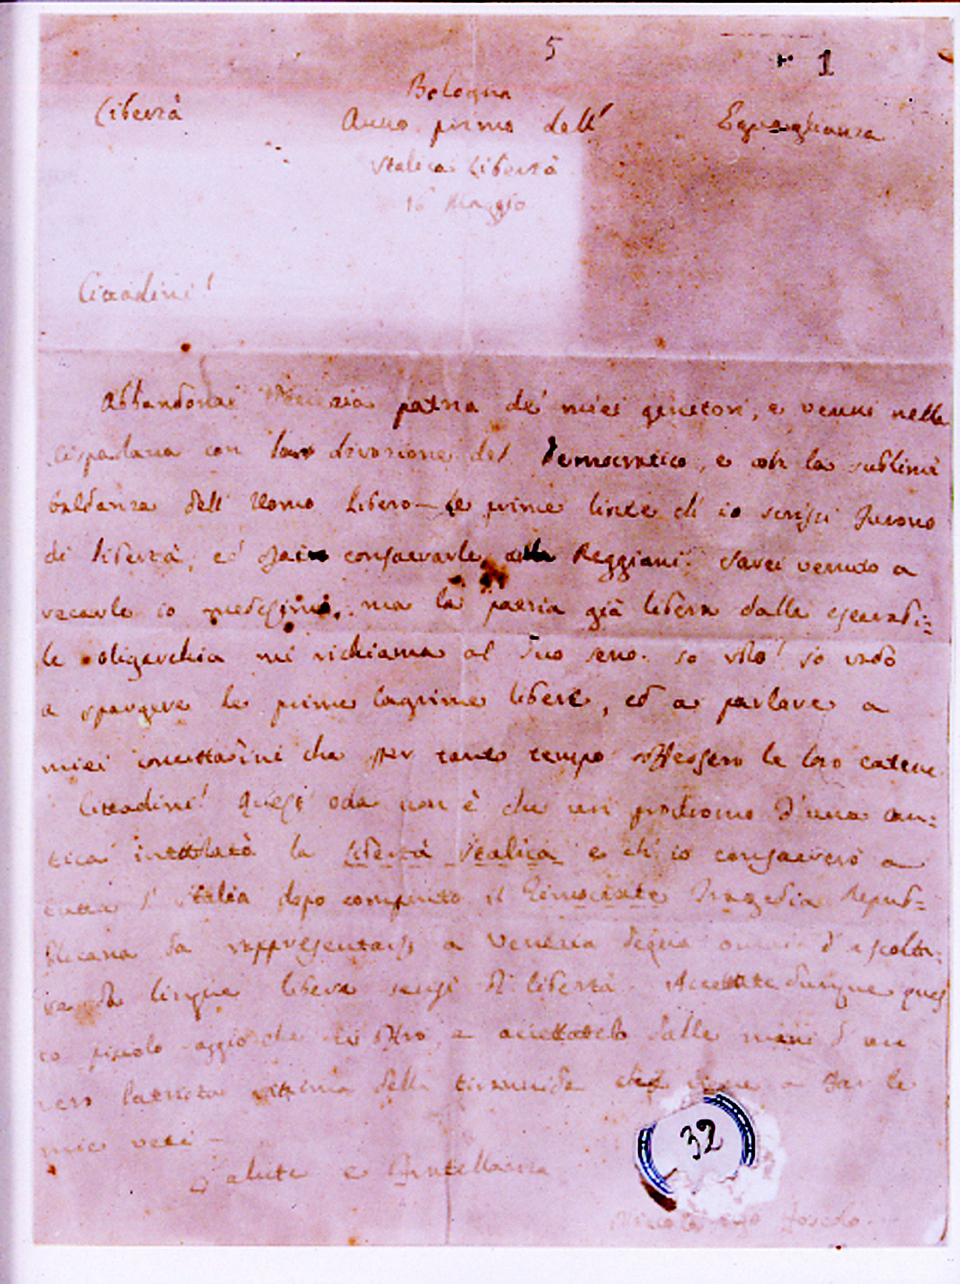 5
1
Bologna
Libertà Anno primo dell' Eguaglianza
Italica Libertà
16 Maggio
Cittadini!
Abbandonai Venezia patria de' miei genitori, e venni nella
Cispadana con devozione del Democratico, e con la sublime
baldanza dell' Uomo Libero — Le prime linee ch' io scrissi furono
di libertà, ed consacrarle alla Reggiani. Sarei venuto a
recarle io medesimo, ma la patria già libera dalla esecrabi=
le oligarchia mi richiama al suo seno. Io volo! Io vado
a spargere le prime lagrime libere, ed a parlare a
miei concittadini che per tanto tempo soffersero le loro catene.
Cittadini! Quest' oda non è che un prodromo d'una can=
tica intitolata la Libertà Italica e ch' io consacrerò a
tutta l' Italia dopo compiuto il Timocrate Tragedia Repub=
blicana da rappresentarsi a Venezia degna d' ascolta=
re da lingua libera sensi di libertà. Accettate dunque ques
to picciolo aggio che vi offro, e accettatelo dalle mani d' un
vero Patriota vittima della tirannide che a far le
mie veci —
Salute e Fratellanza
32
Niccolò Ugo Foscolo.